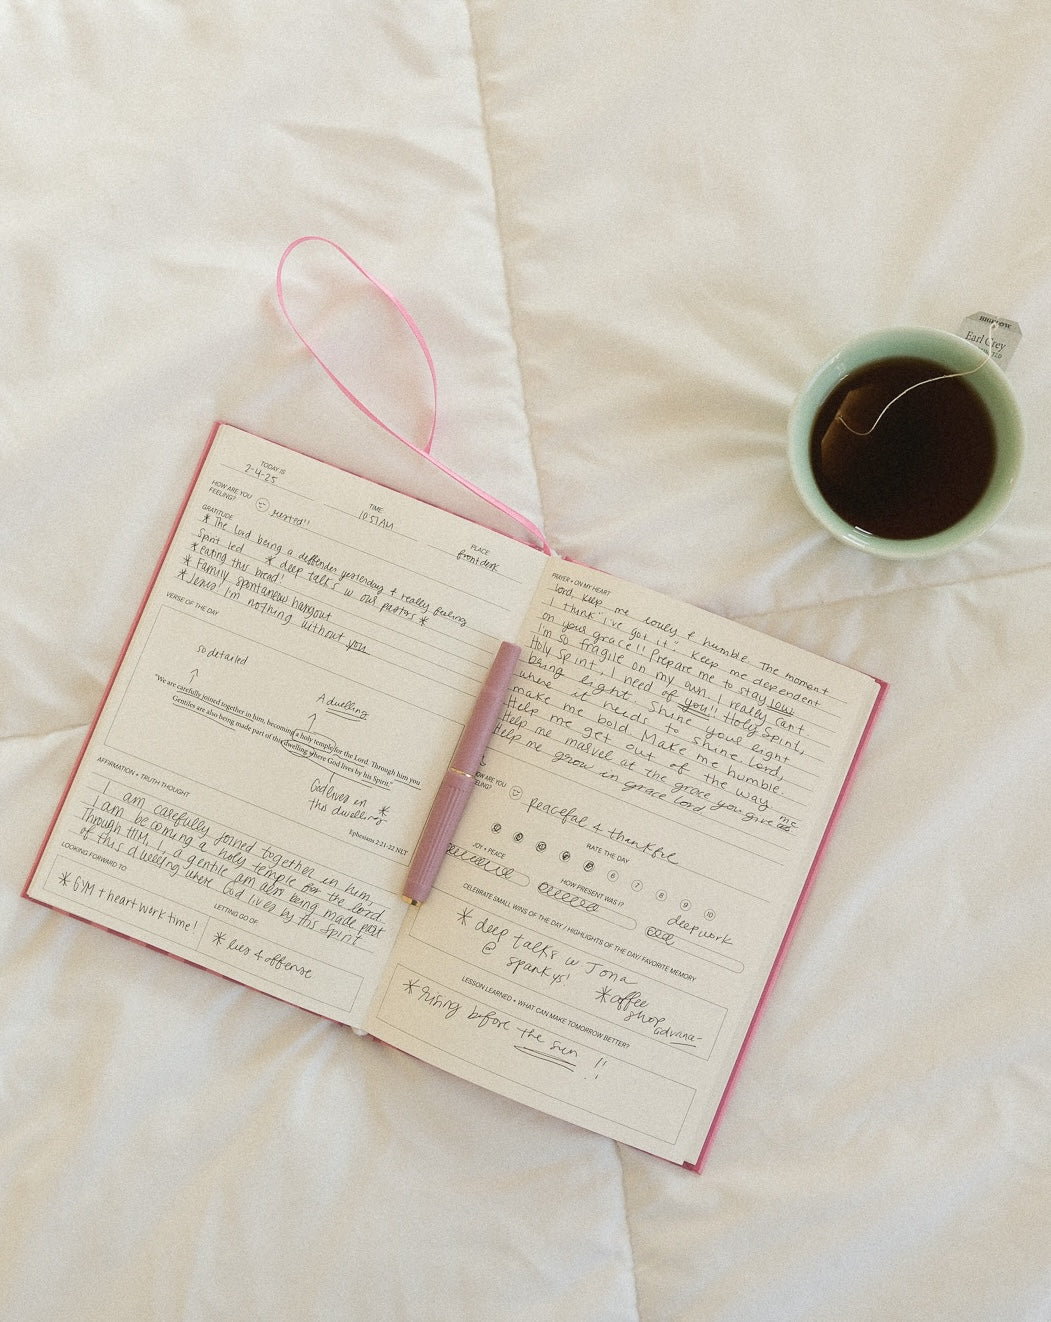 BIGELOW
Earl Grey
TODAY IS
2-4-25
TIME
10:51AM
PLACE
front desk
HOW ARE YOU
FEELING?
rested!!
GRATITUDE
* The Lord being a defender yesterday + really feeling
Spirit led * deep talks w our pastors *
* eating this bread!
* Family spontaneous hangout
* Jesus! I'm nothing without you
VERSE OF THE DAY
so detailed
A dwelling
"We are carefully joined together in him, becoming a holy temple for the Lord. Through him you
Gentiles are also being made part of this dwelling where God lives by his Spirit."
God lives in *
this dwelling
Ephesians 2:21-22 NLT
AFFIRMATION + TRUTH THOUGHT
I am carefully joined together in him,
I am becoming a holy temple for the Lord.
Through HIM, I, a gentile am also being made part
of this dwelling where God lives by his Spirit
LOOKING FORWARD TO
* GYM + heart work time!
LETTING GO OF
* lies & offense
PRAYER + ON MY HEART
Lord, keep me lowly & humble. The moment
I think "i've got it". Keep me dependent
on your grace!! Prepare me to stay low
I'm so fragile on my own. I really can't
Holy Spirit, I need of you!! Holy Spirit,
bring light. Shine your light
where it needs to shine Lord,
make me bold. Make me humble.
Help me get out of the way
Help me marvel at the grace you give me
Help me grow in grace Lord.
HOW ARE YOU
FEELING?
peaceful & thankful
RATE THE DAY
6 7 8 9 10
JOY + PEACE
HOW PRESENT WAS I?
deep work
CELEBRATE SMALL WINS OF THE DAY / HIGHLIGHTS OF THE DAY / FAVORITE MEMORY
* deep talks w Jona
@ spankys!
* coffee
shop
LESSON LEARNED + WHAT CAN MAKE TOMORROW BETTER?
* rising before the sun !!